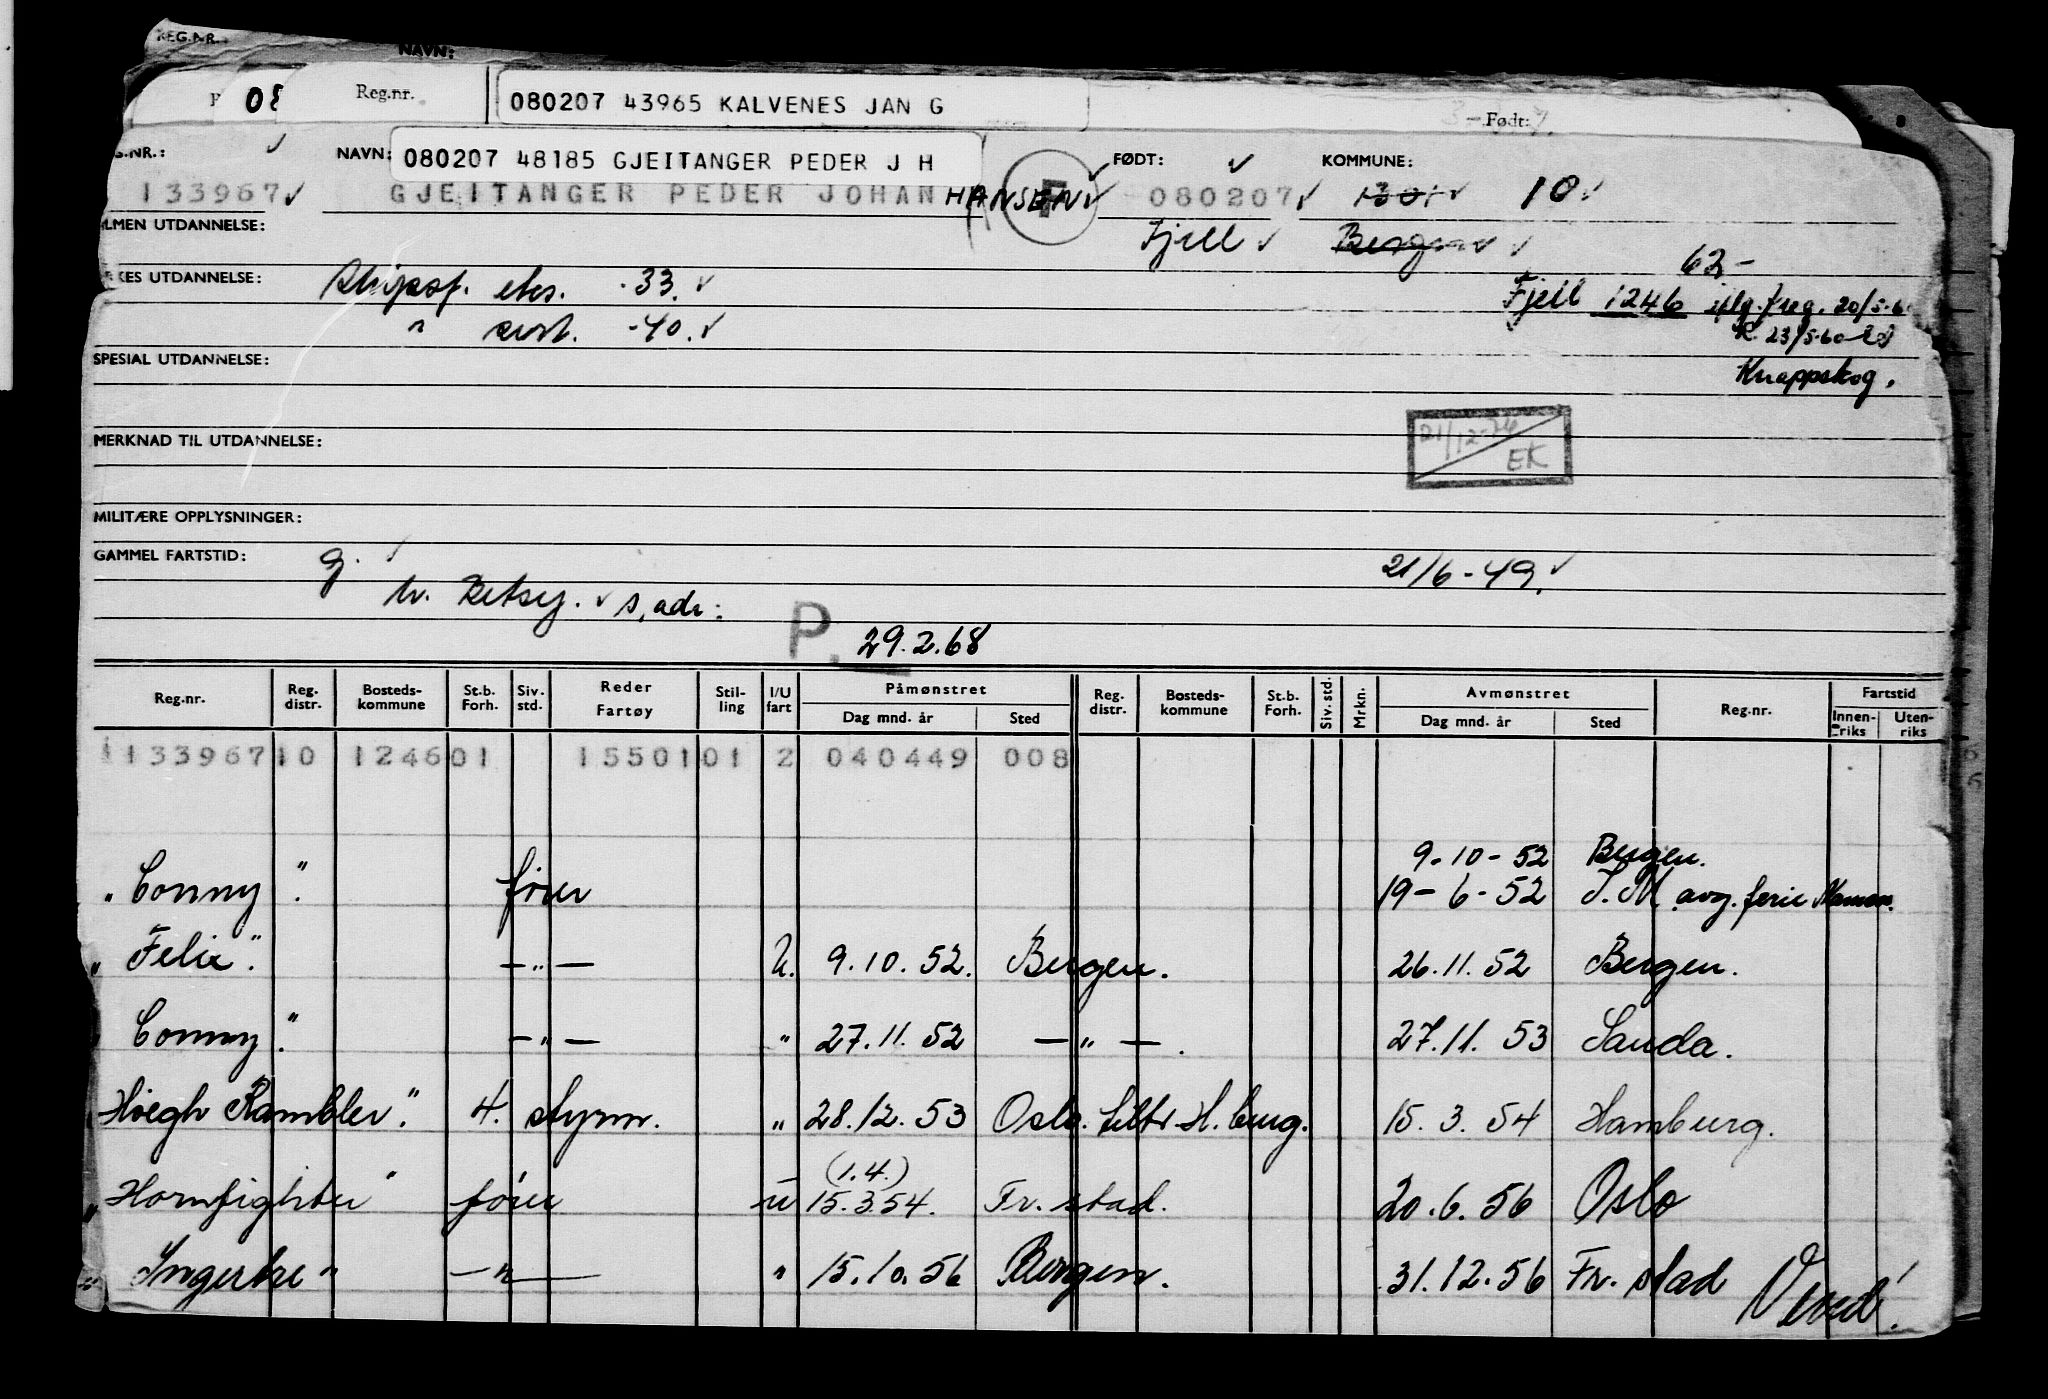 REG.NR.
NAVN:
08 Reg.nr. 080207 43965 KALVENES JAN G Født:
G.NR.: NAVN: 080207 48185 GJEITANGER PEDER J H FØDT: KOMMUNE:
133967 GJEITANGER PEDER JOHAN HANSEN F 080207 1301 10
LMEN UTDANNELSE: Fjell Bergen
62-
KES UTDANNELSE: Skipsf. eks. -33.
Fjell 1246 iflg. freg. 20/5-6
" -40.
23/5-60
SPESIAL UTDANNELSE: Knappskog.
MERKNAD TIL UTDANNELSE: 21/12-76 EK
MILITÆRE OPPLYSNINGER:
GAMMEL FARTSTID: g. 21/6-49.
h. Betsy. s, adr:
P. 29.2.68
Reg.nr. Reg. distr. Bosteds-kommune St.b. Forh. Siv. std. Reder Fartøy Stil-ling I/U fart Påmønstret Dag mnd. år Sted Reg. distr. Bosteds-kommune St.b. Forh. Siv. std. Mrkn. Avmønstret Dag mnd. år Sted Reg.nr. Fartstid Innen-riks Uten-riks
133967 10 1246 01 15501 01 2 040449 008
9-10-52 Bergen.
"Conny". fører 19-6-52 S.M. avg. ferie
"Felix". -"- U. 9.10.52. Bergen. 26.11.52 Bergen.
Conny". -"- " 27.11.52 -"-. 27.11.53 Sauda.
Høegh Rambler". 4. styrm. " 28.12.53 Oslo. tiltr. H.burg. 15.3.54 Hamburg.
(1.4.)
"Hornfighter" fører u 15.3.54. Fr.stad. 20.6.56 Oslo
"Ingertre" -"- " 15.10.56 Bergen. 31.12.56 Fr.stad
Vend!